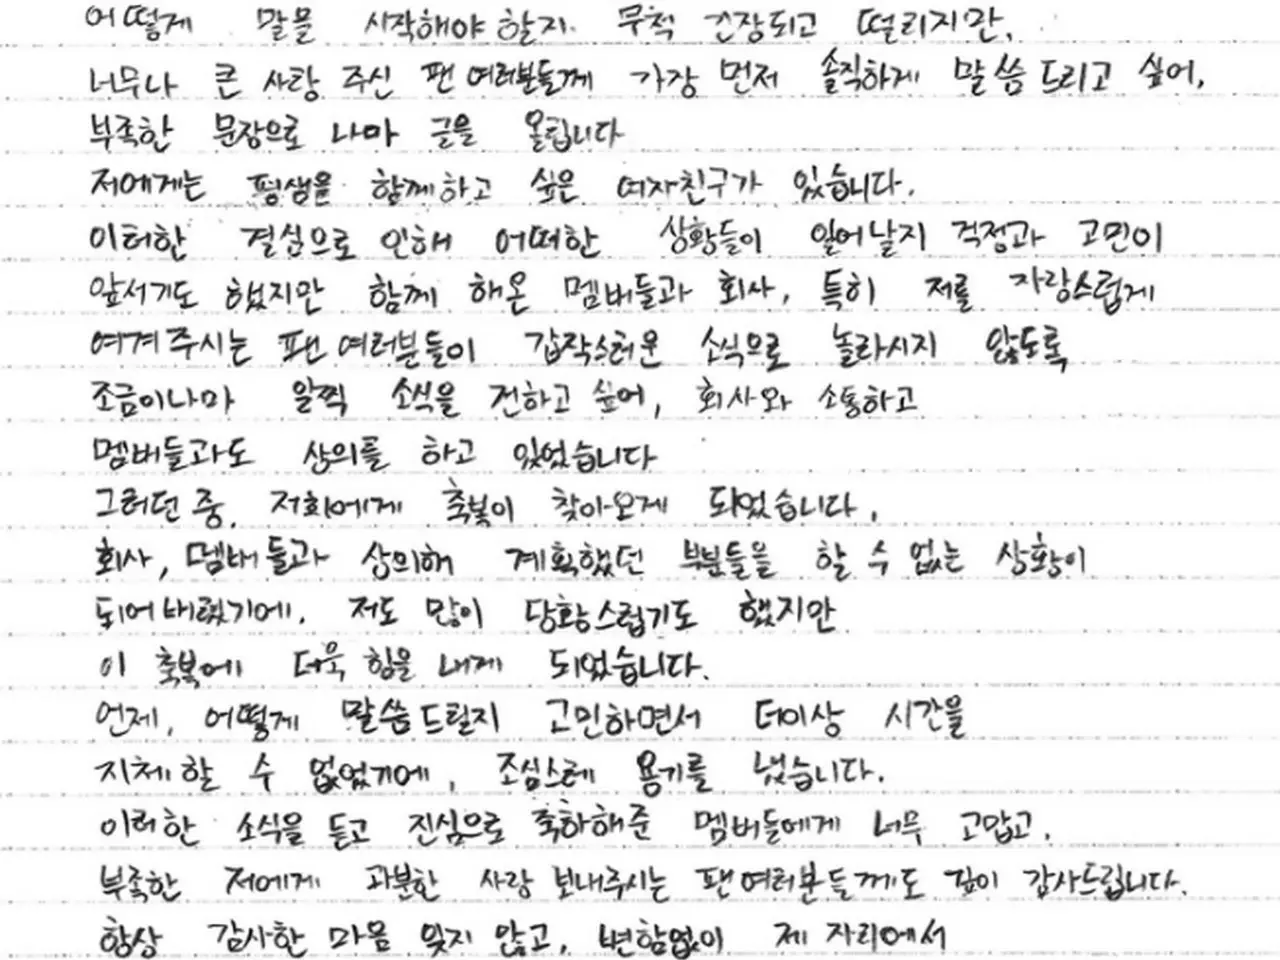 어떻게 말을 시작해야 할지 무척 긴장되고 떨리지만,
너무나 큰 사랑 주신 팬 여러분들께 가장 먼저 솔직하게 말씀드리고 싶어,
부족한 문장으로 나마 글을 올립니다
저에게는 평생을 함께하고 싶은 여자친구가 있습니다.
이러한 결심으로 인해 어떠한 상황들이 일어날지 걱정과 고민이
앞서기도 했지만 함께 해온 멤버들과 회사, 특히 저를 자랑스럽게
여겨주시는 팬 여러분들이 갑작스러운 소식으로 놀라시지 않도록
조금이나마 일찍 소식을 전하고 싶어, 회사와 소통하고
멤버들과도 상의를 하고 있었습니다
그러던 중, 저희에게 축복이 찾아오게 되었습니다.
회사, 멤버들과 상의해 계획했던 부분들을 할 수 없는 상황이
되어버렸기에, 저도 많이 당황스럽기도 했지만
이 축복에 더욱 힘을 내게 되었습니다.
언제, 어떻게 말씀드릴지 고민하면서 더이상 시간을
지체할 수 없었기에, 조심스레 용기를 냈습니다.
이러한 소식을 듣고 진심으로 축하해준 멤버들에게 너무 고맙고,
부족한 저에게 과분한 사랑 보내주시는 팬여러분들께도 깊이 감사드립니다.
항상 감사한 마음 잊지 않고, 변함없이 제 자리에서